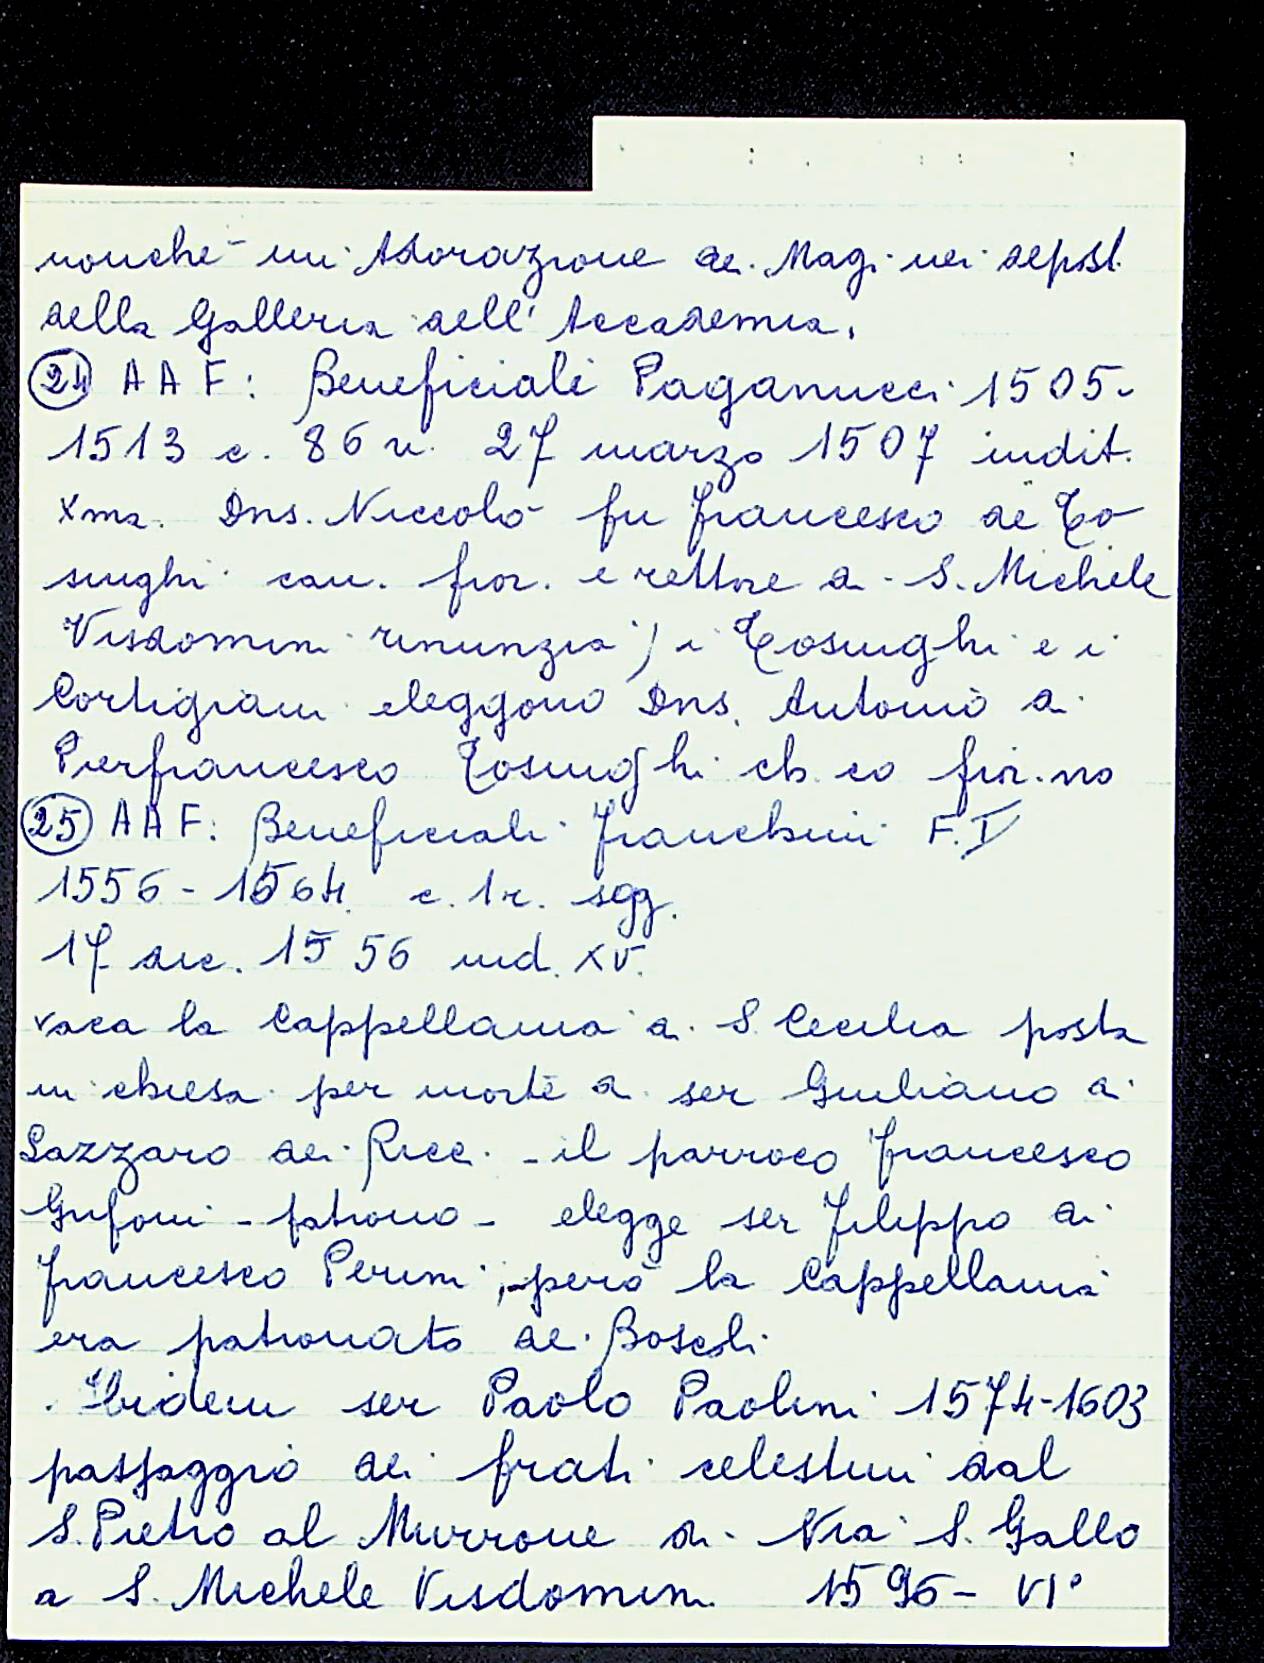 nonché un'Adorazione dei Magi nei deposit.
della Galleria dell'Accademia.
(24) AAF: Beneficiali Paganucci 1505-
1513 c. 86 v. 27 marzo 1507 indit.
Xma. Dns. Niccolò fu Francesco de To
singhi can. fior. e rettore di S. Michele
Visdomini rinunzia; i Tosinghi e i
Cortigiani eleggono Dns. Antonio di
Pierfrancesco Tosinghi ch.co fior.no
(25) AAF: Beneficiali Franchini F. V
1556-1564. c. 1r. sgg.
17 dic. 1556 ind. XV.
vaca la Cappellania di S. Cecilia posta
in chiesa per morte di ser Giuliano di
Lazzaro dei Ricci - il parroco Francesco
Grifoni - patrono - elegge ser Filippo di
Francesco Perini; però la Cappellania
era patronato dei Boscoli.
. Ibidem ser Paolo Paolini 1574-1603
passaggio dei frati celestini dal
S. Pietro al Murrone di Via S. Gallo
a S. Michele Visdomini 1596 - VI°